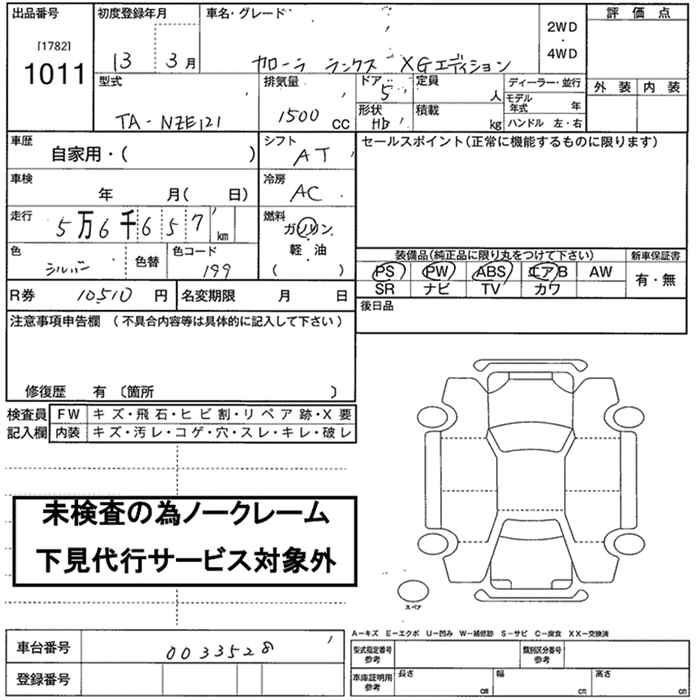 出品番号
[1782]
1011
初度登録年月
13 3月
車名・グレード
カローラ ランクス XGエディション
2WD
・
4WD
評価点
外装 内装
型式
TA-NZE121
排気量
1500 CC
ドア
5
形状
HB
定員
人
積載
kg
ディーラー・並行
モデル年式 年
ハンドル 左・右
車歴
自家用・( )
シフト
AT
セールスポイント(正常に機能するものに限ります)
車検
年 月( 日)
冷房
AC
走行
5万6千657 km
燃料
ガソリン
・
軽・油
( )
色
シルバー
色替
色コード
199
装備品(純正品に限り丸をつけて下さい)
新車保証書
PS PW ABS エアB AW
有・無
SR ナビ TV カワ
R券 10510円
名変期限 月 日
後日品
注意事項申告欄 (不具合内容等は具体的に記入して下さい)
修復歴 有 〔箇所 〕
検査員記入欄
FW キズ・飛石・ヒビ割・リペア跡・X要
内装 キズ・汚レ・コゲ・穴・スレ・キレ・破レ
未検査の為ノークレーム
下見代行サービス対象外
スペア
A-キズ E-エクボ U-凹み W-補修跡 S-サビ C-腐食 XX-交換済
車台番号 0033528
登録番号
型式指定番号参考
類別区分番号参考
車庫証明用参考
長さ cm
幅 cm
高さ cm